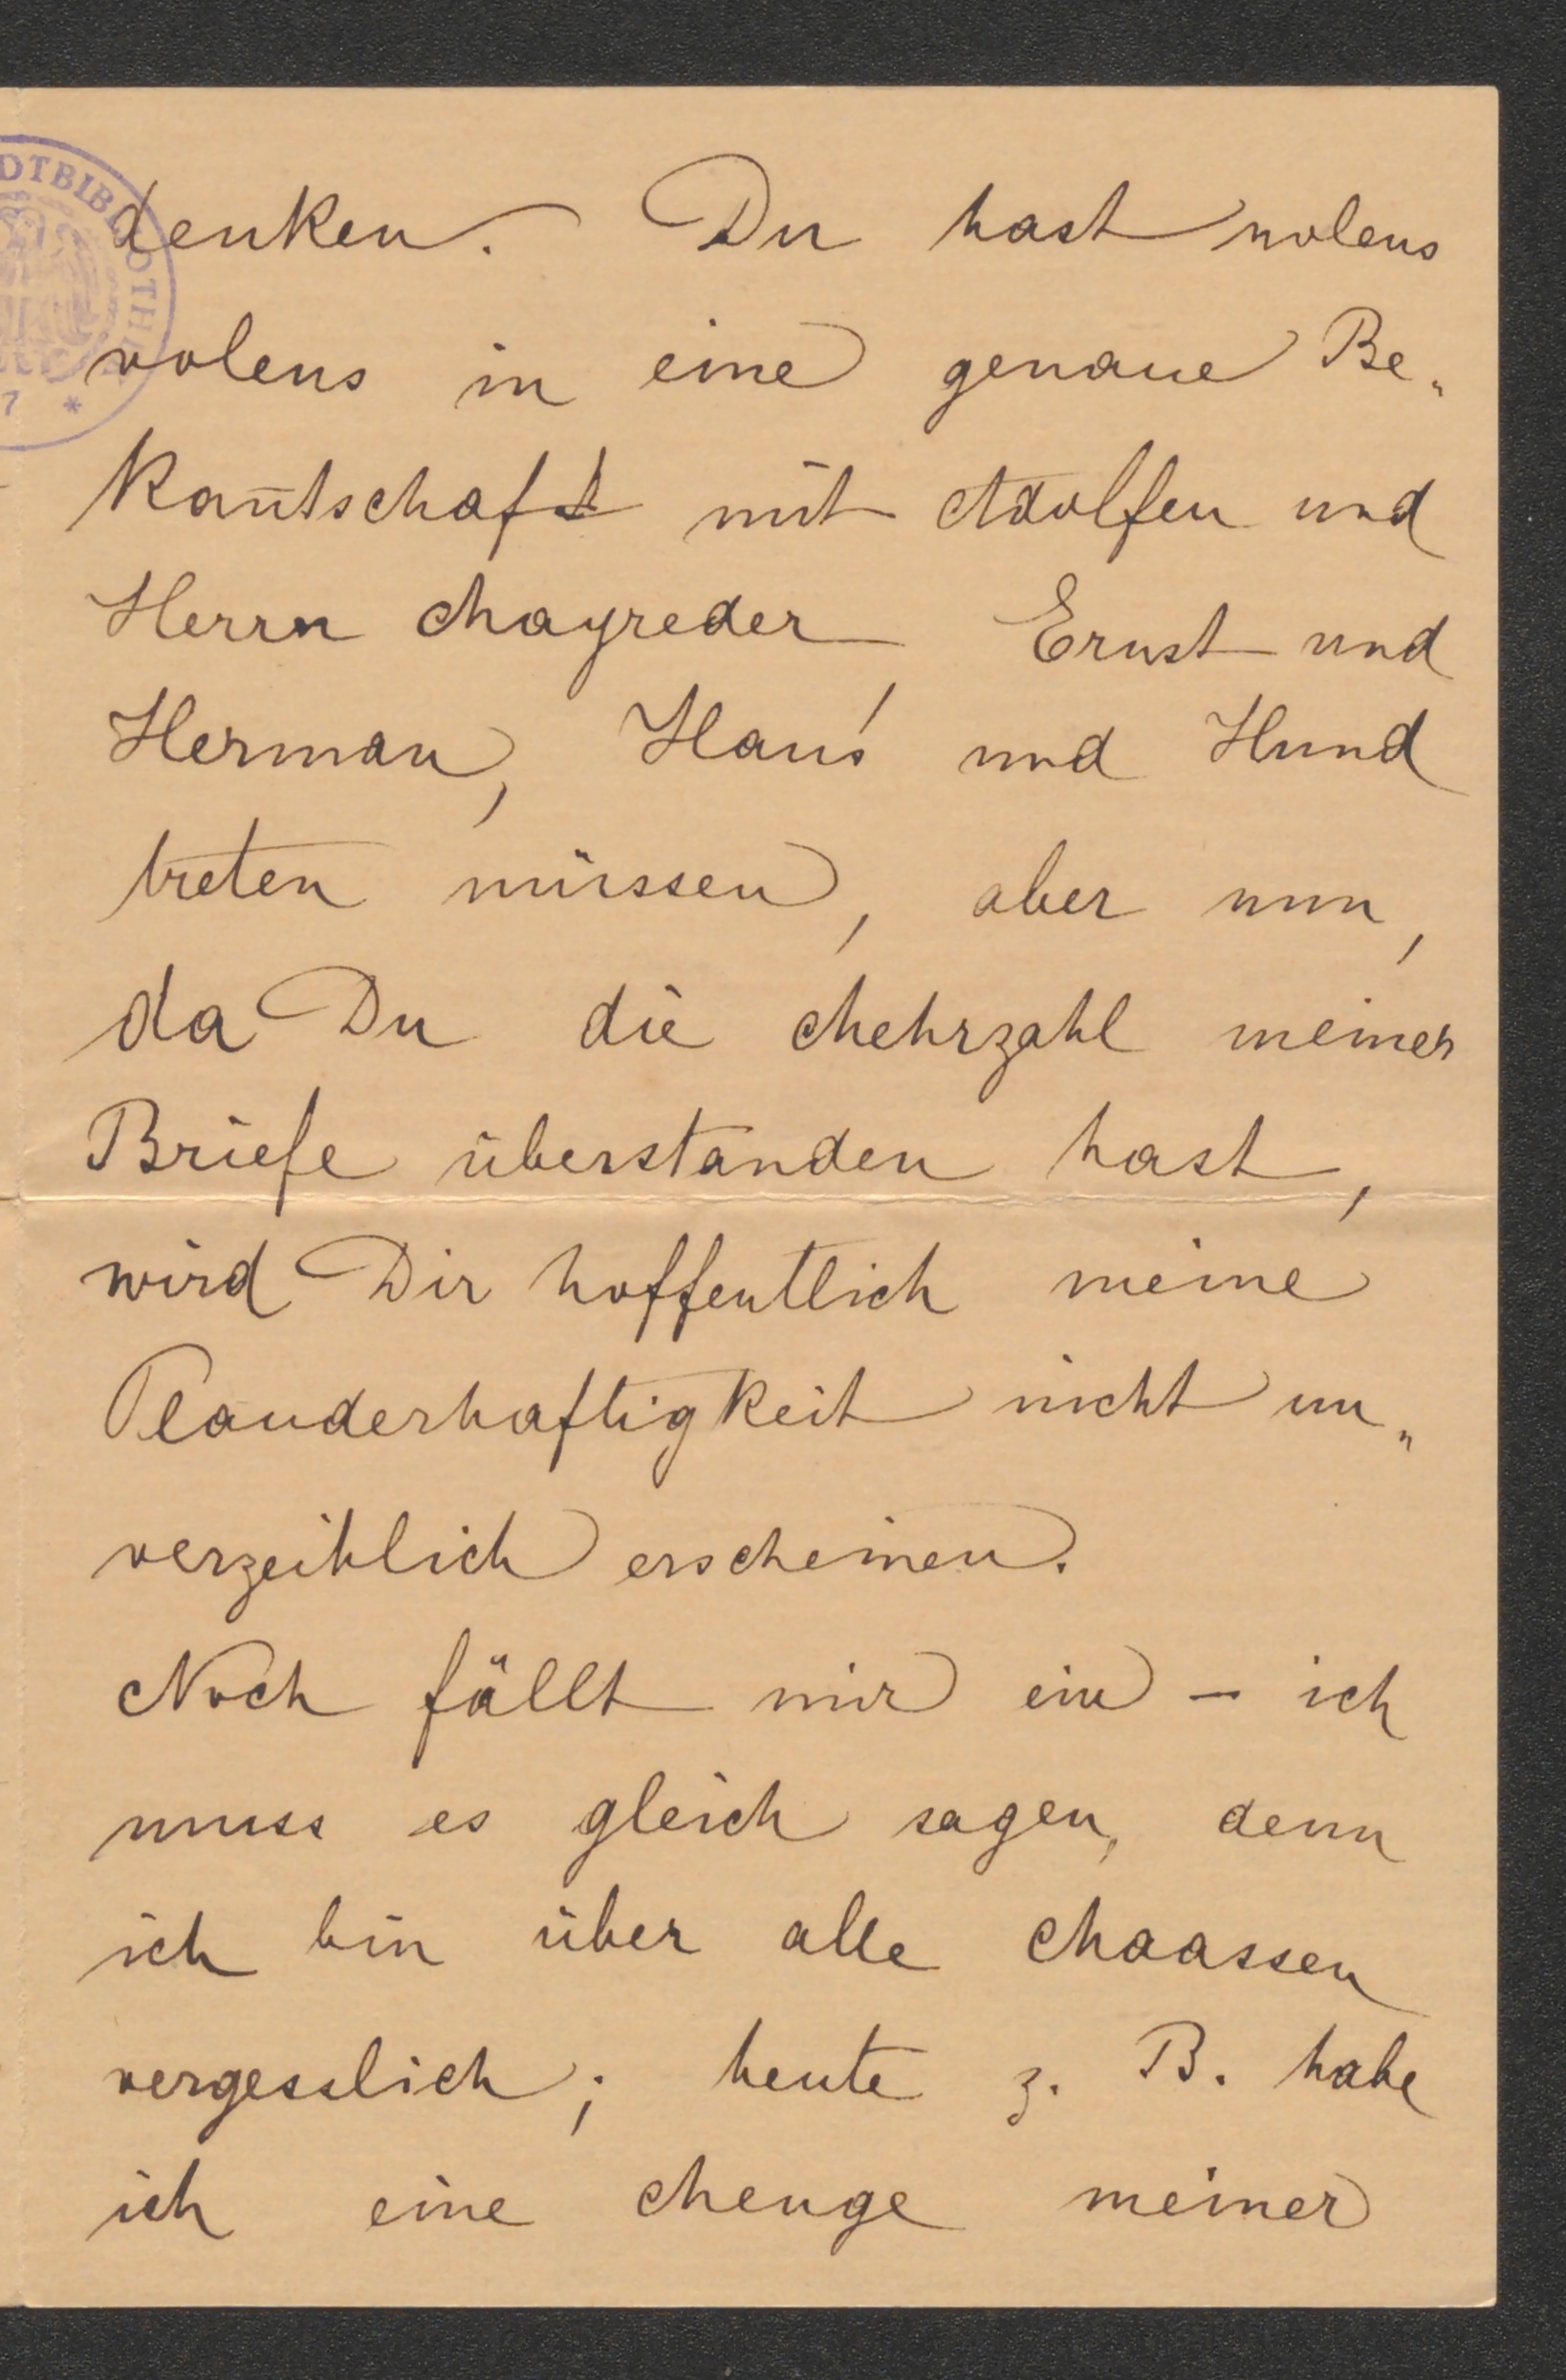 DTBIBLIOTHEK
7 *
denken. Du hast nolens
volens in eine genaue Be„
kan̄tschaft mit Adolfen und
Herrn Mayreder, Ernst und
Herman, Haus und Hund
treten müssen, aber nun,
da Du die Mehrzahl meiner
Briefe überstanden hast,
wird Dir hoffentlich meine
Plauderhaftigkeit nicht un„
verzeihlich erscheinen.
Noch fällt mir ein – ich
muss es gleich sagen, denn
ich bin über alle Maassen
vergesslich; heute z. B. habe
ich eine Menge meiner